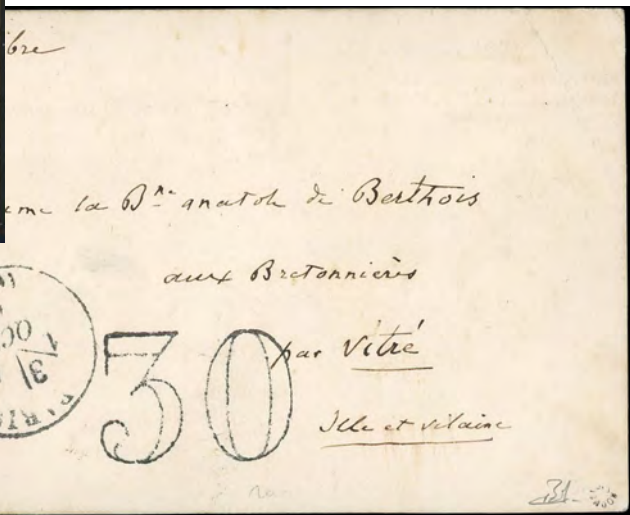 ibre
ame la B^ne anatole de Berthois
aux Bretonnières
par Vitré
Ille et vilaine
30
OC
1
3
PARIS